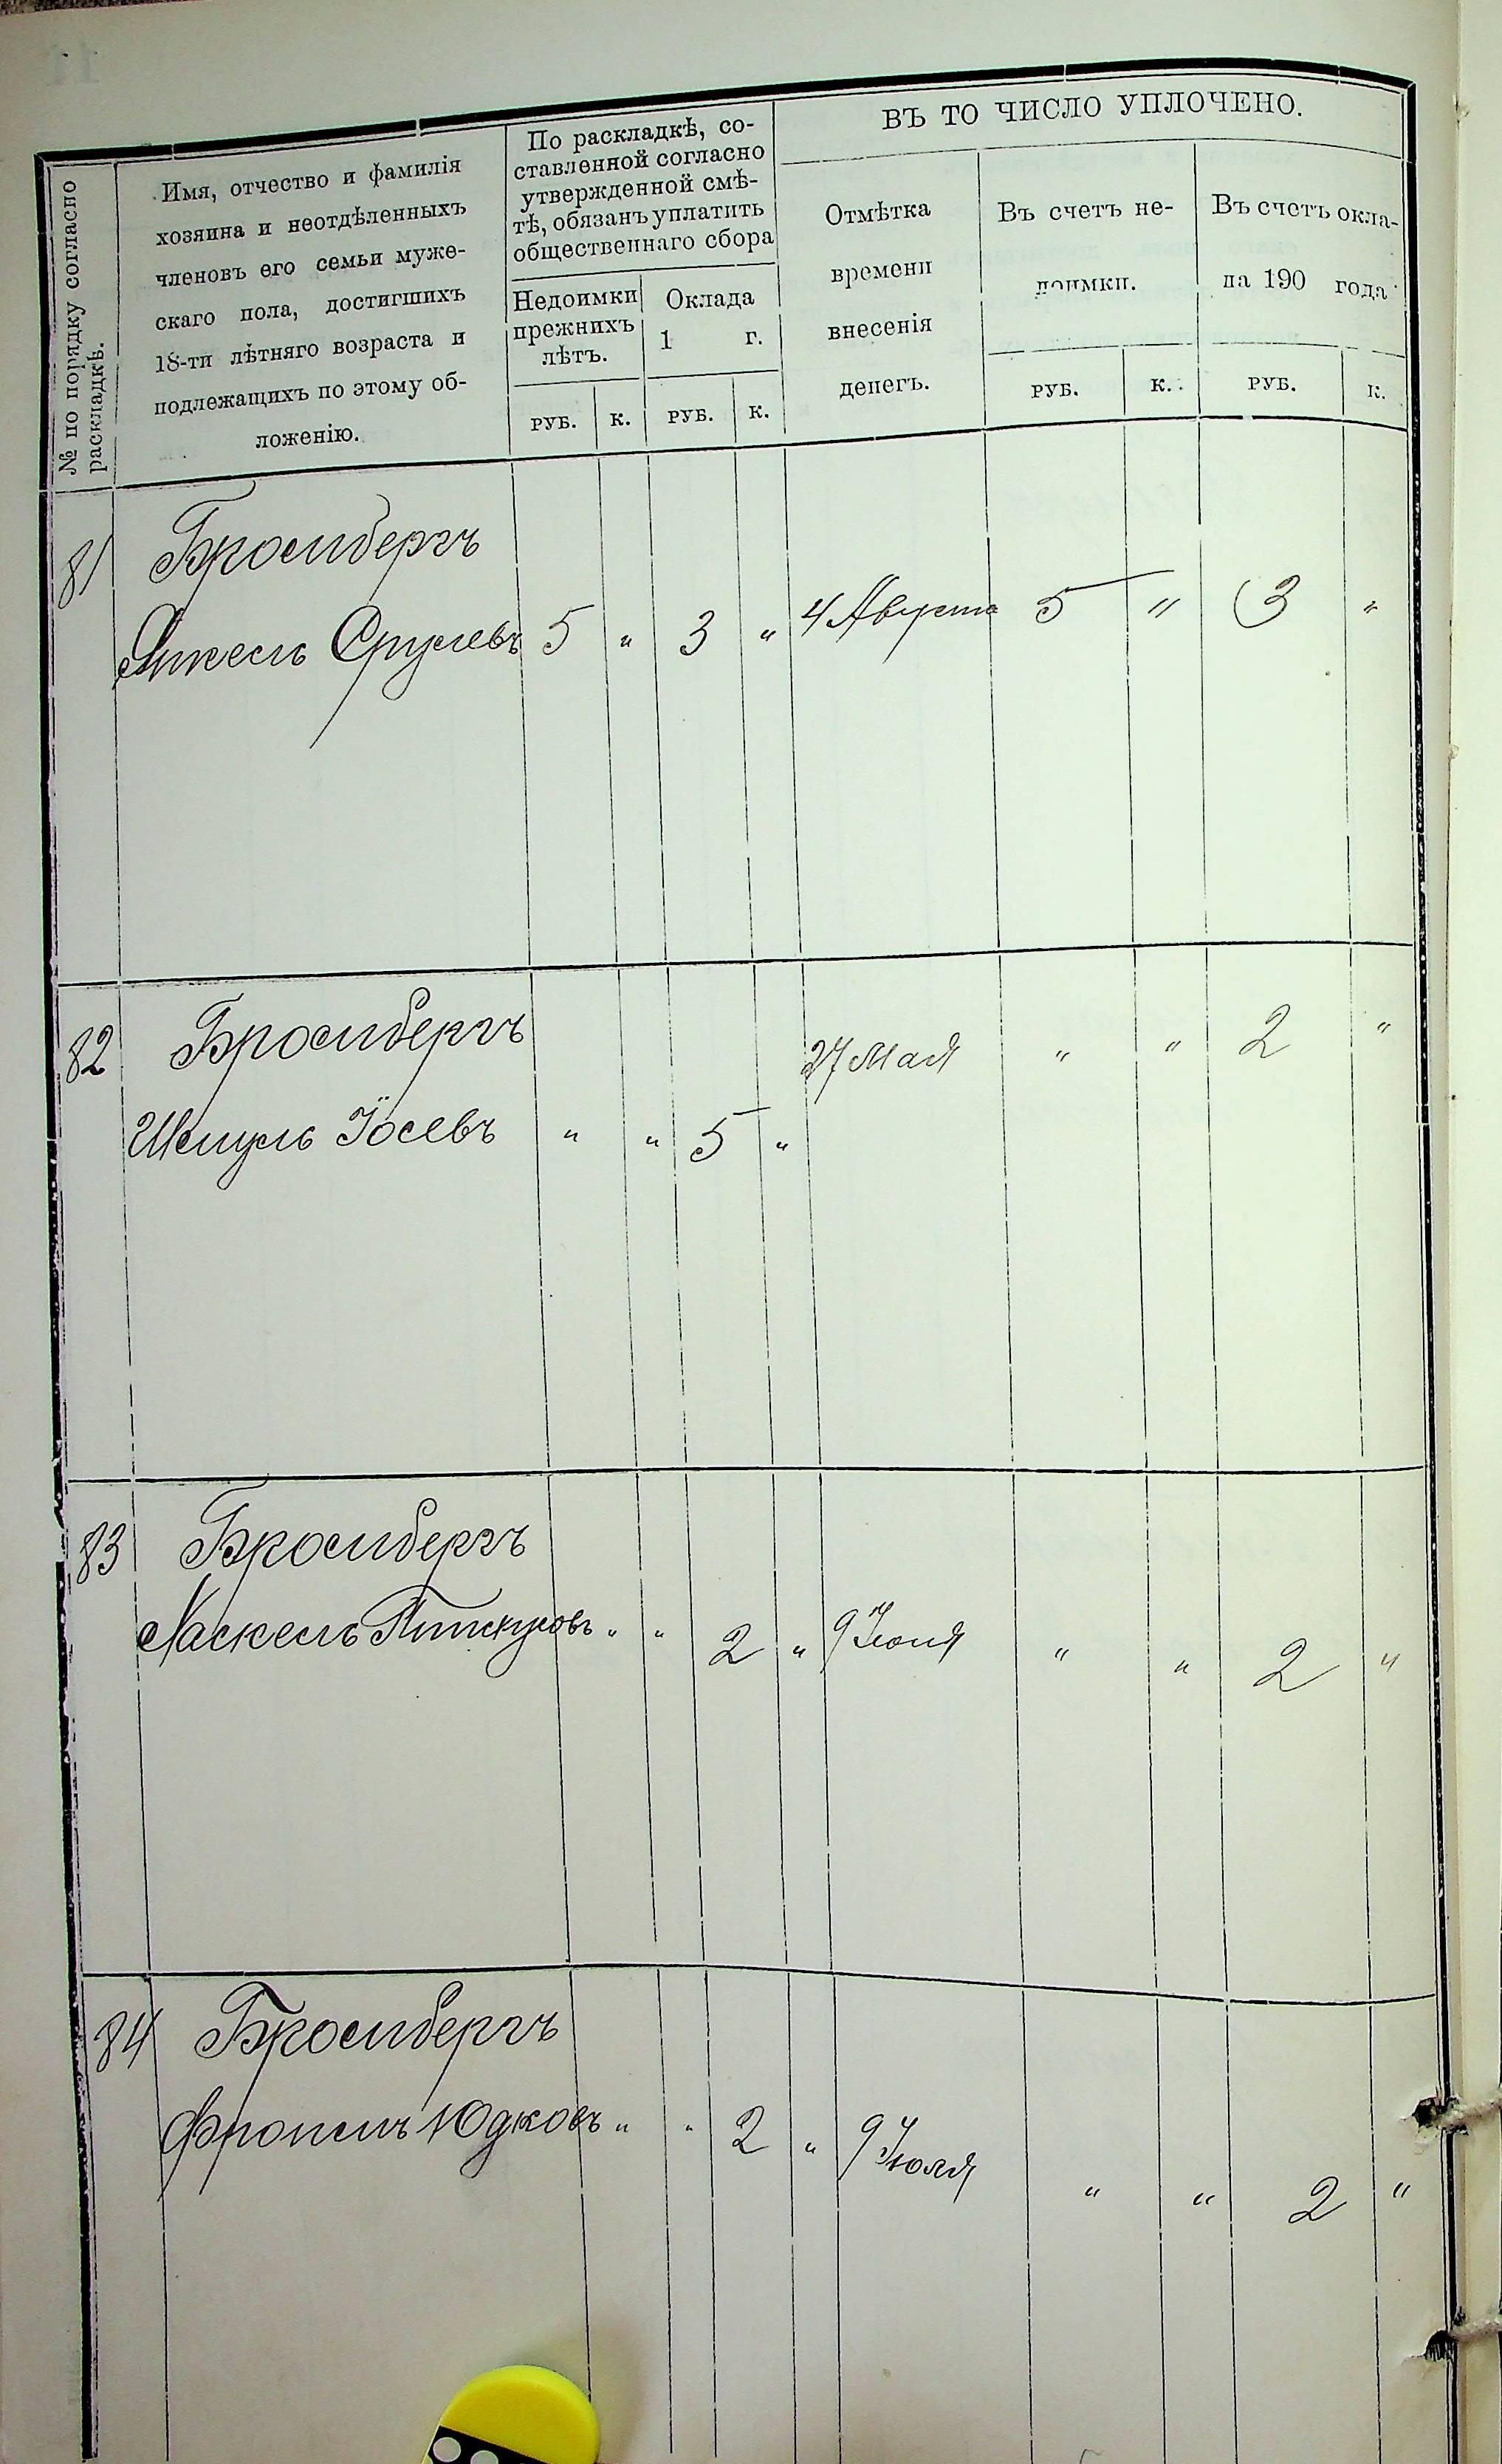 № по порядку согласно
раскладкѣ.
Имя, отчество и фамилія
хозяина и неотдѣленныхъ
членовъ его семьи муже-
скаго пола, достигшихъ
18-ти лѣтняго возраста и
подлежащихъ по этому об-
ложенію.
По раскладкѣ, со-
ставленной согласно
утвержденной смѣ-
тѣ, обязанъ уплатить
общественнаго сбора
Недоимки
прежнихъ
лѣтъ.
Оклада
1 г.
РУБ. К. РУБ. К.
ВЪ ТО ЧИСЛО УПЛОЧЕНО.
Отмѣтка
времени
внесенія
денегъ.
Въ счетъ не-
доимки.
РУБ. К.
Въ счетъ окла-
да 190 года
РУБ. К.
81 Бромбергъ
Янкель Срулевъ 5 " 3 " 4 Августа 5 " 3 "
82 Бромбергъ 27 Мая " " 2 "
Шмуль Іосевъ " " 5 "
83 Бромбергъ
Хаскель " " 2 " 9 Іюня " " 2 "
84 Бромбергъ
Фроимъ Юдковъ " " 2 " 9 Іюля " " 2 "